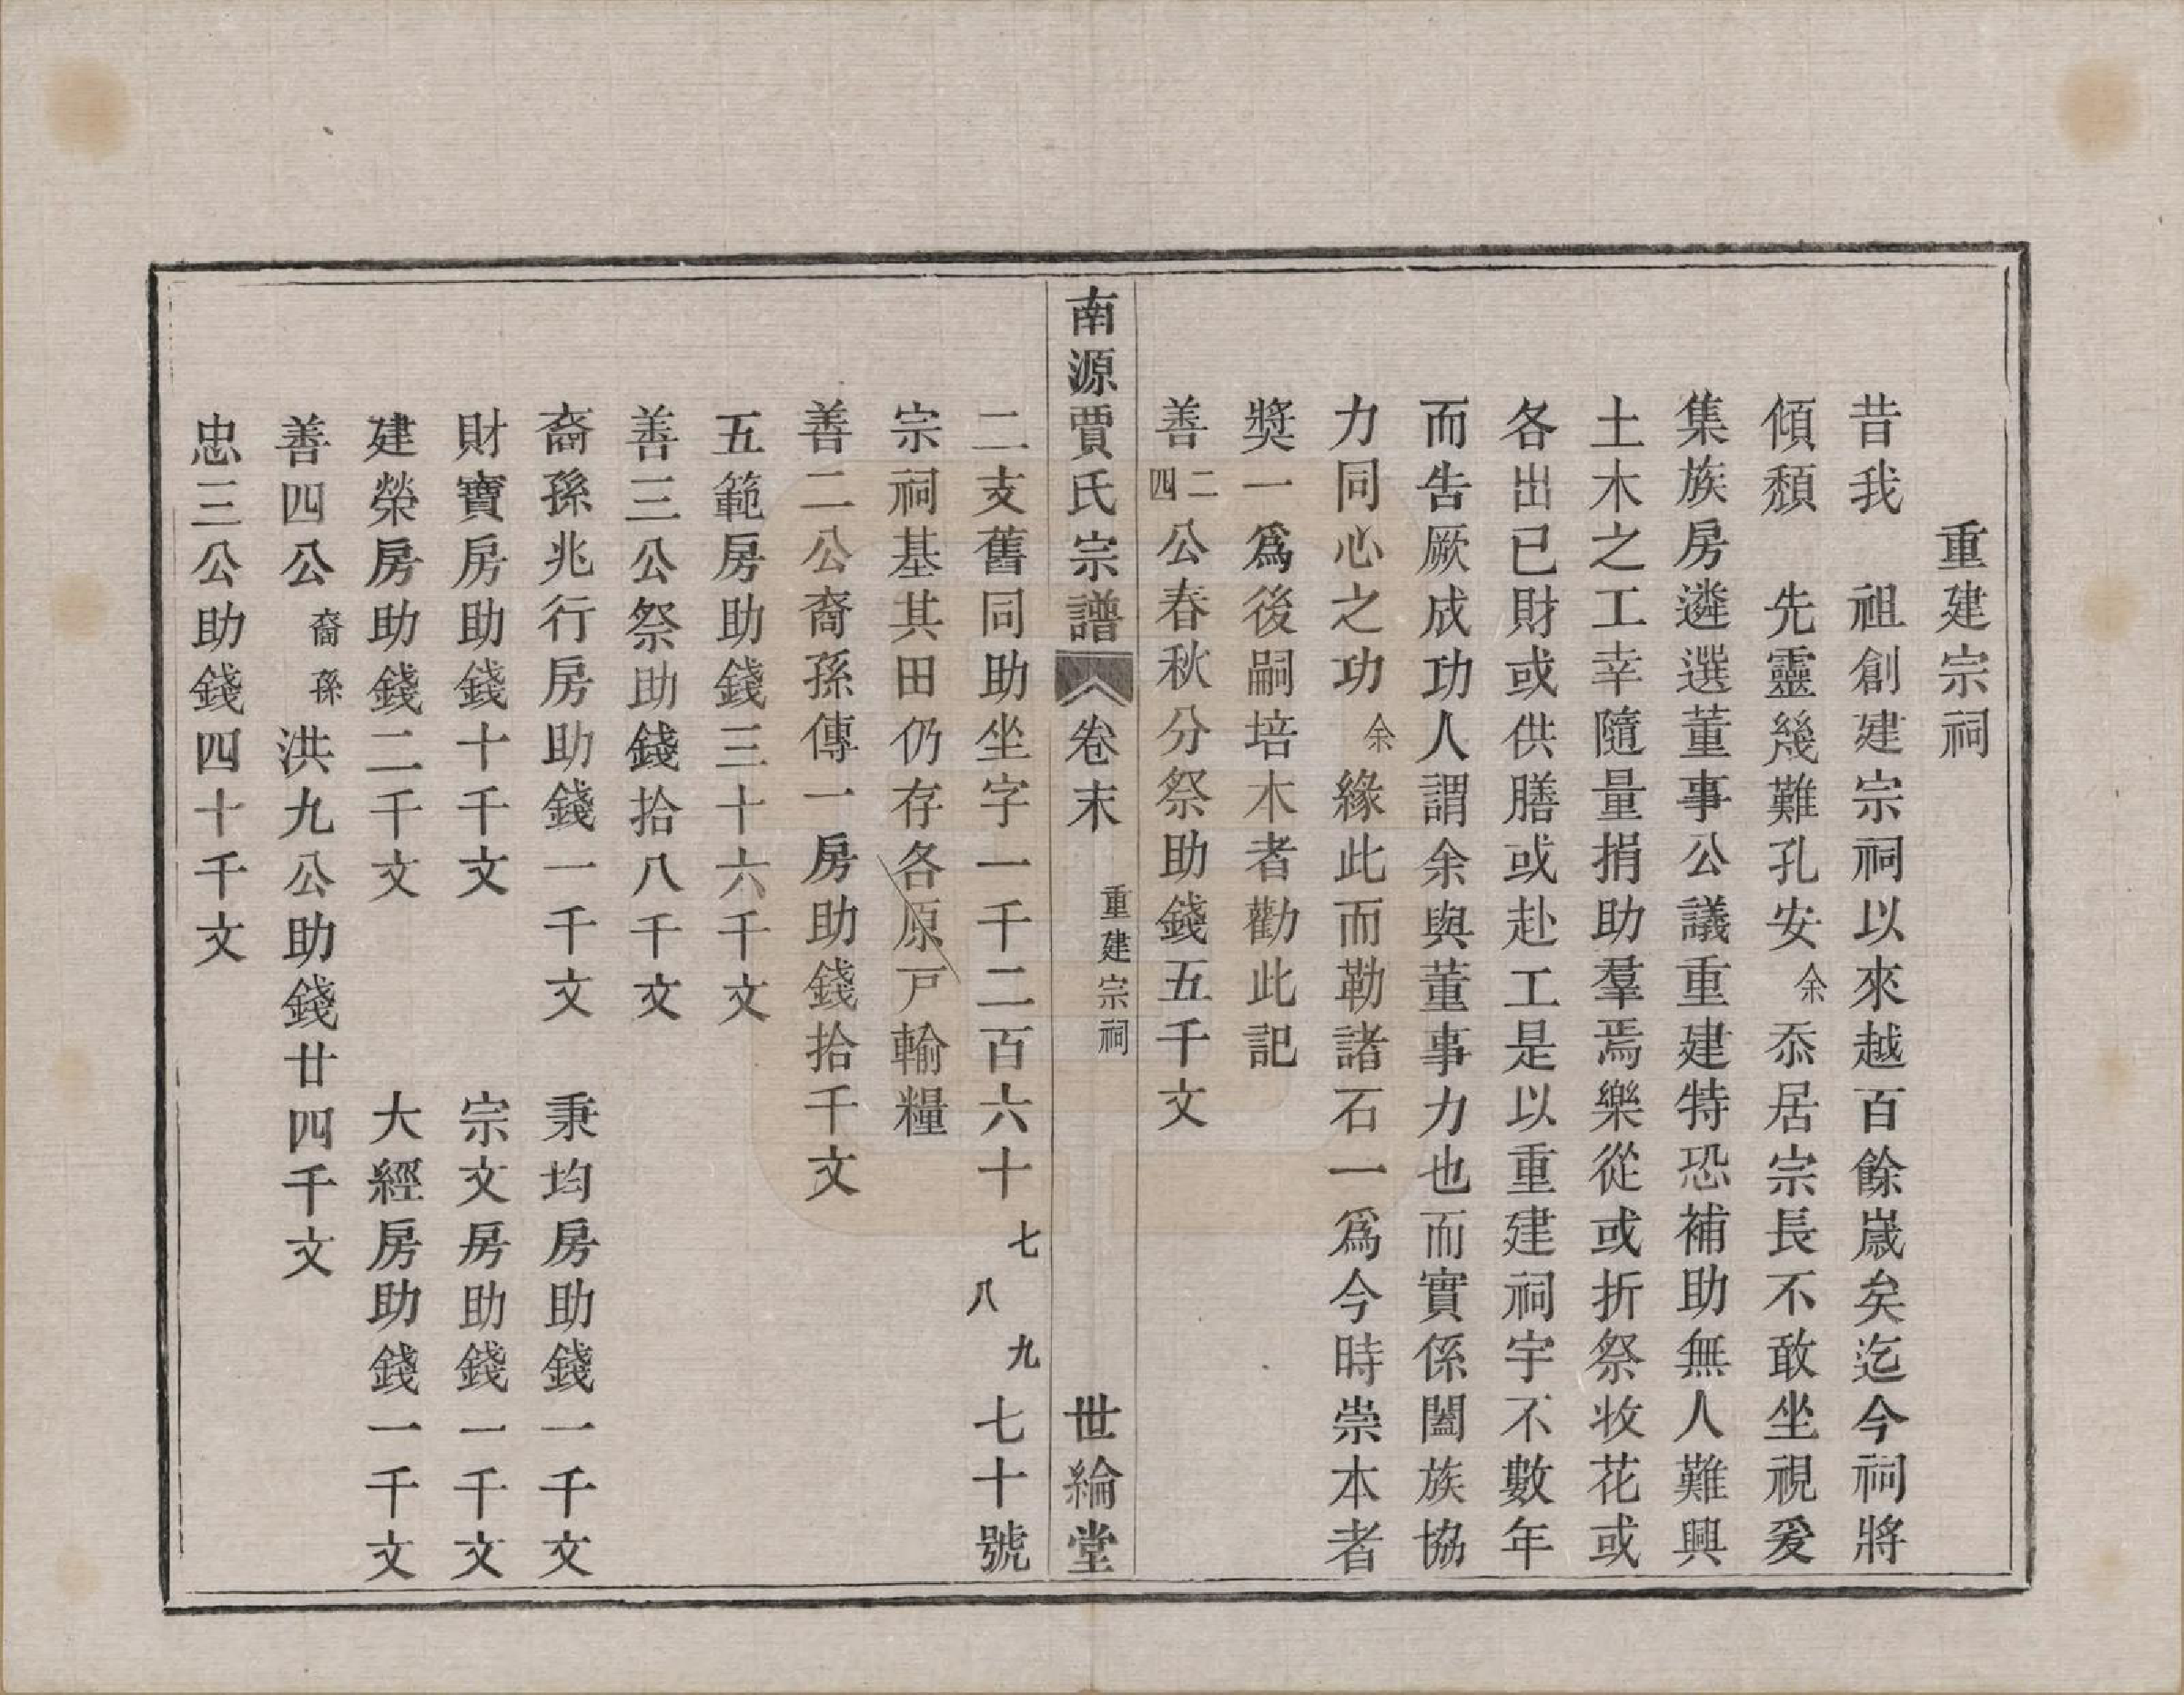 重建宗祠
昔我　祖創建宗祠以來越百餘嵗矣迄今祠將
傾頹　先靈幾難孔安余忝居宗長不敢坐視爰
集族房遴選董事公議重建特恐補助無人難興
土木之工幸隨量捐助羣焉樂從或折祭收花或
各出已財或供膳或赴工是以重建祠宇不數年
而告厥成功人謂余與董事力也而實係闔族協
力同心之功余緣此而勒諸石一爲今時崇本者
獎一爲後嗣培木者勸此記
善二四公春秋分祭助錢五千文
南源賈氏宗譜　卷末　重建宗祠　世綸堂
二支舊同助坐字一千二百六十七八九七十號
宗祠基其田仍存各原戸輸糧
善二公裔孫傳一房助錢拾千文
五範房助錢三十六千文
善三公祭助錢拾八千文
裔孫兆行房助錢一千文　秉均房助錢一千文
財寶房助錢十千文　宗文房助錢一千文
建榮房助錢二千文　大經房助錢一千文
善四公裔孫洪九公助錢廿四千文
忠三公助錢四十千文